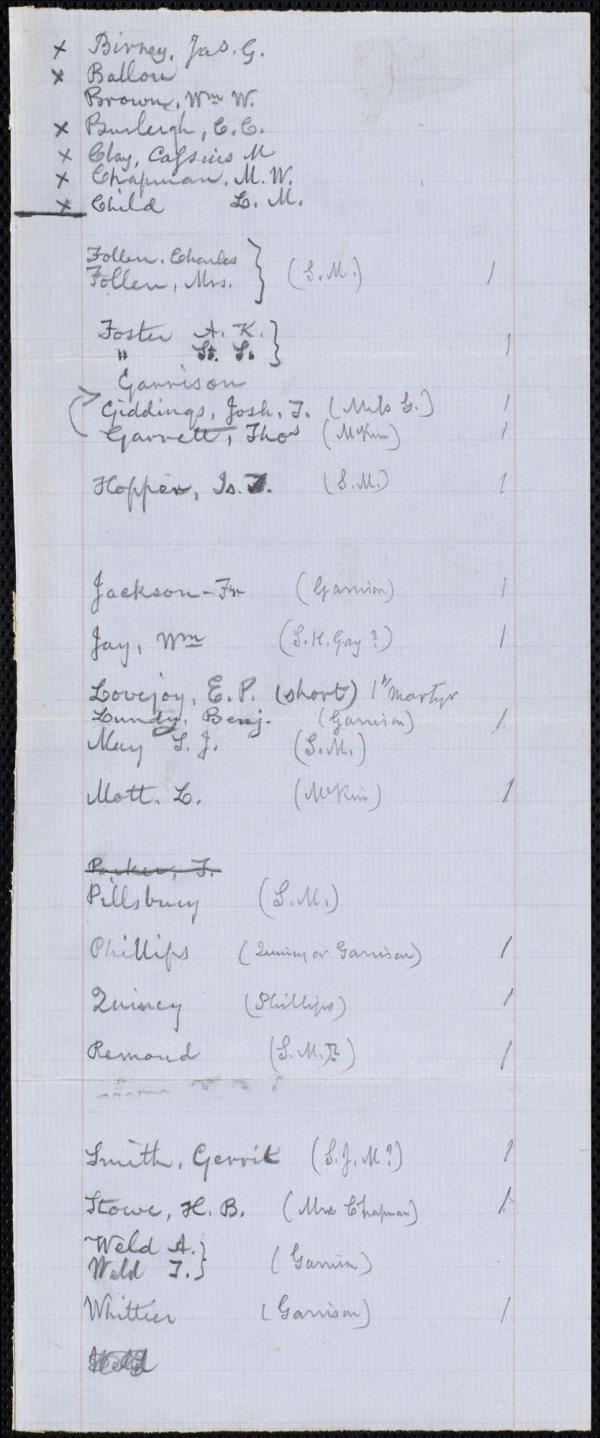 x Birney, Jas. G.
x Ballou
Brown, Wm W.
x Burleigh, C. C.
x Clay, Cassius M
x Chapman, M. W.
x Child L. M.
Follen, Charles
Follen, Mrs. } (S. M.) /
Foster A. K. }
" St. S. /
Garrison
Giddings, Josh. J. /
Garrett, Thos (McKim) /
Hopper, Is. T. (S. M.) /
Jackson-Fr (Garrison) /
Jay, Wm (S. H. Gay ?) /
Lovejoy, E. P. (short) 1st martyr
Lundy, Benj. (Garrison) /
May S. J. (S. M.)
Mott. L. (McKim) /
Parker, T.
Pillsbury (S. M.)
Phillips (Quincy or Garrison) /
Quincy (Phillips) /
Remond (S. M.) /
Smith, Gerrit (S. J. M ?) /
Stowe, H. B. (Mrs. Chapman) /
Weld A. }
Weld T. } (Garrison)
Whittier (Garrison) /